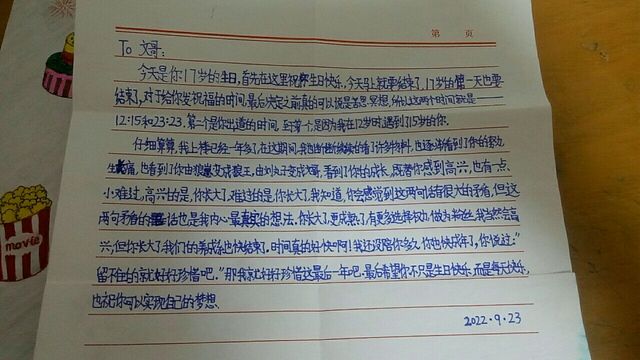 第 页
To 文哥:
今天是你17岁的生日,首先在这里祝你生日快乐,今天马上就要结束了,17岁的第一天也要
结束了,对于给你发祝福的时间,最后决定之前真的可以说是苦思冥想,所以这两个时间就是——
12:15和23:23.第二个是你出道的时间,至于第一个是因为我在12岁时遇到了15岁的你。
仔细算算,我上捧已经一年多了,在这期间,我也断断续续的看了许多物料,也逐渐看到了你的努力
也看到了你由狼崽变成狼王,由刘丸子变成文哥,看到了你的成长,既替你感到高兴,也有一点
小难过,高兴的是,你长大了,难过的是,你长大了,我知道,你会感觉到这两句话有很大的矛盾,但这
两句矛盾的话也是我内心最真实的想法,你长大了,更成熟了,有更多选择权力,做为粉丝,我当然会高
兴,但你长大了,我们的养成系也快结束了.时间真的好快啊!我还没陪你多久,你也快成年了,你说过:"
留不住的就好好珍惜吧."那我就好好珍惜这最后一年吧.最后希望你不只是生日快乐,而是每天快乐,
也祝你可以实现自己的梦想.
2022.9.23
movie